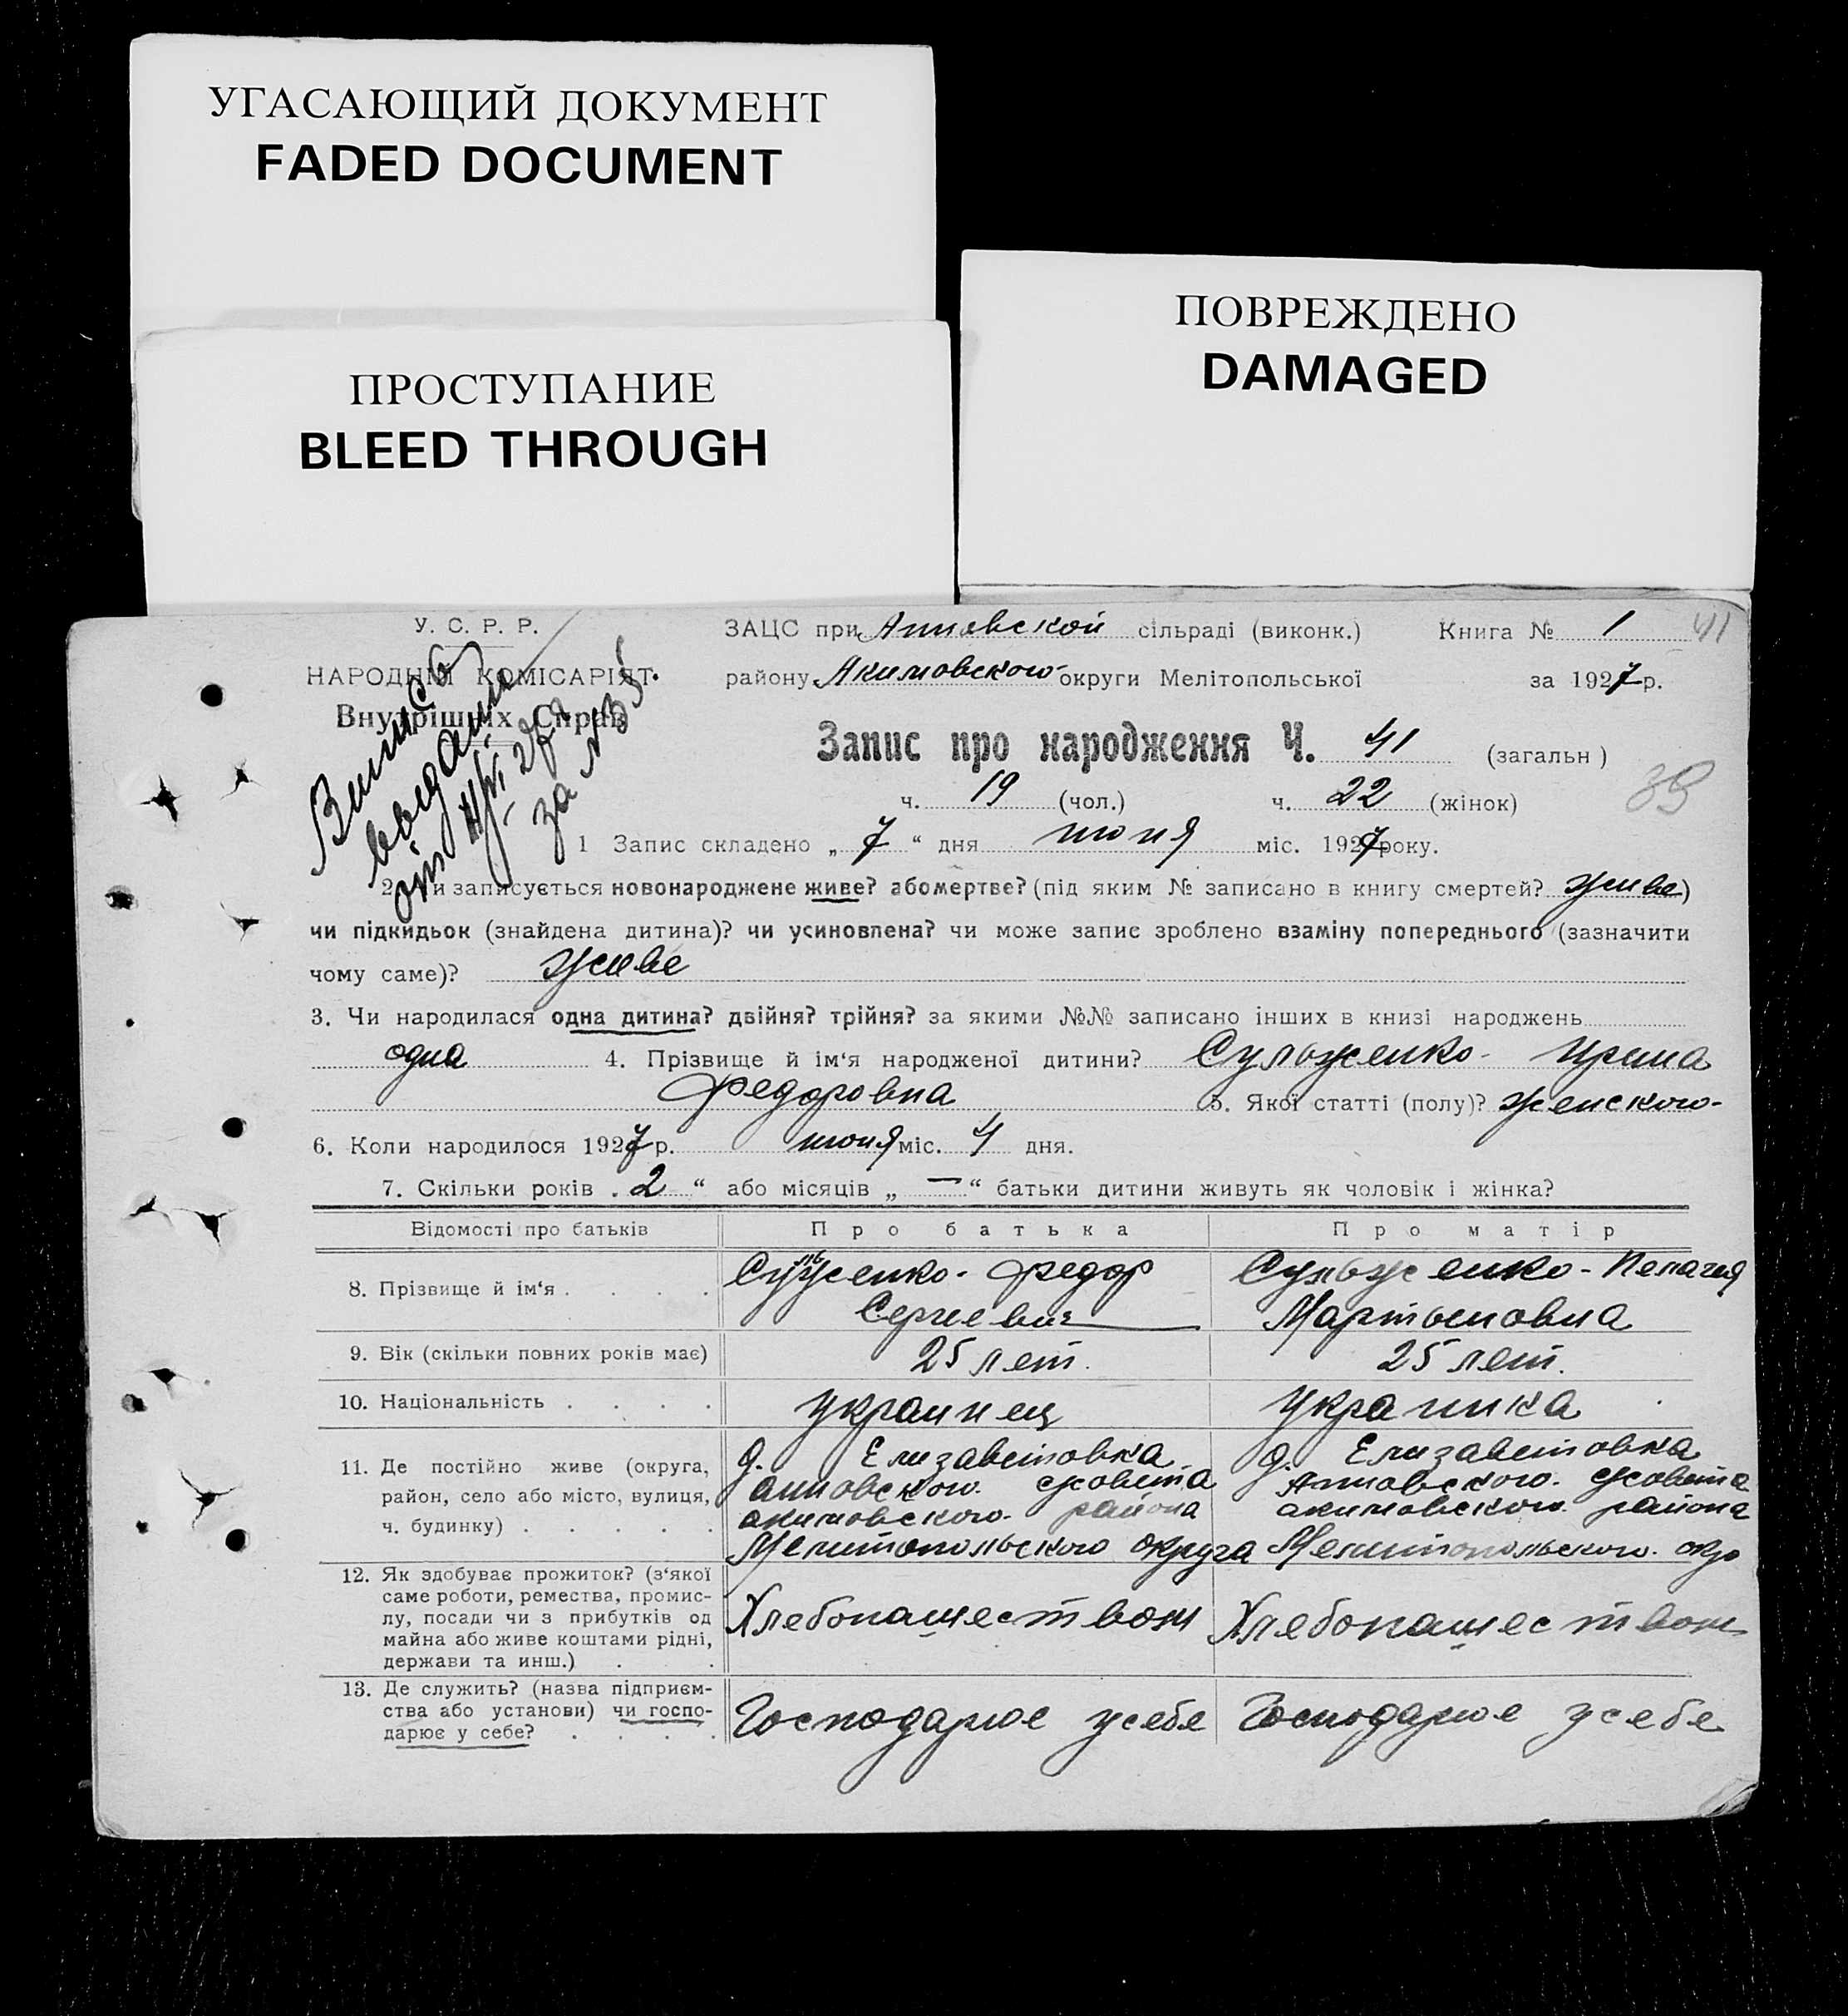 УГАСАЮЩИЙ ДОКУМЕНТ
FADED DOCUMENT
ПРОСТУПАНИЕ
BLEED THROUGH
ПОВРЕЖДЕНО
DAMAGED
У. С. Р. Р.
НАРОДНІЙ КОМІСАРІЯТ
Внутрішніх Справ
ЗАЦС при Анновской сільраді (виконк.) Книга № 1 41
району Акимовского округи Мелітопольської за 1927 р.
Запис про народження Ч. 41 (загальн)
ч. 19 (чол.) ч. 22 (жінок) 39
Выпись
за №35
1 Запис складено „ 7 “ дня июня міс. 1927 року.
2. Чи записується новонароджене живе? або мертве? (під яким № записано в книгу смертей? живе)
чи підкидьок (знайдена дитина)? чи усиновлена? чи може запис зроблено взаміну попереднього (зазначити
чому саме)? живе
3. Чи народилася одна дитина? двійня? трійня? за якими №№ записано інших в книзі народжень
одна 4. Прізвище й ім‘я народженої дитини? Сульженко - Ирина
Федоровна 5. Якої статті (полу)? женского -
6. Коли народилося 1927 р. июня міс. 4 дня.
7. Скільки років „ 2 “ або місяців „ — “ батьки дитини живуть як чоловік і жінка?
Відомості про батьків Про батька Про матір
8. Прізвище й ім‘я . . . . Сульженко - Федор Сульженко - Пелагия
Сергеевич Мартыновна
9. Вік (скільки повних років має) 25 лет. 25 лет.
10. Національність . . . . украинец украинка
11. Де постійно живе (округа, д. Елизаветовка д. Елизаветовка
район, село або місто, вулиця, Анновского с/совета Анновского с/совета
ч. будинку) . . . . . акимовского района акимовского района
Мелитопольского округа Мелитопольского окр
12. Як здобуває прожиток? (з‘якої
саме роботи, ремества, промис-
лу, посади чи з прибутків од Хлебопашеством Хлебопашеством
майна або живе коштами рідні,
держави та инш.) . .
13. Де служить? (назва підприєм-
ства або установи) чи госпо- Господарює у себе Господарює у себе
дарює у себе? . . . .